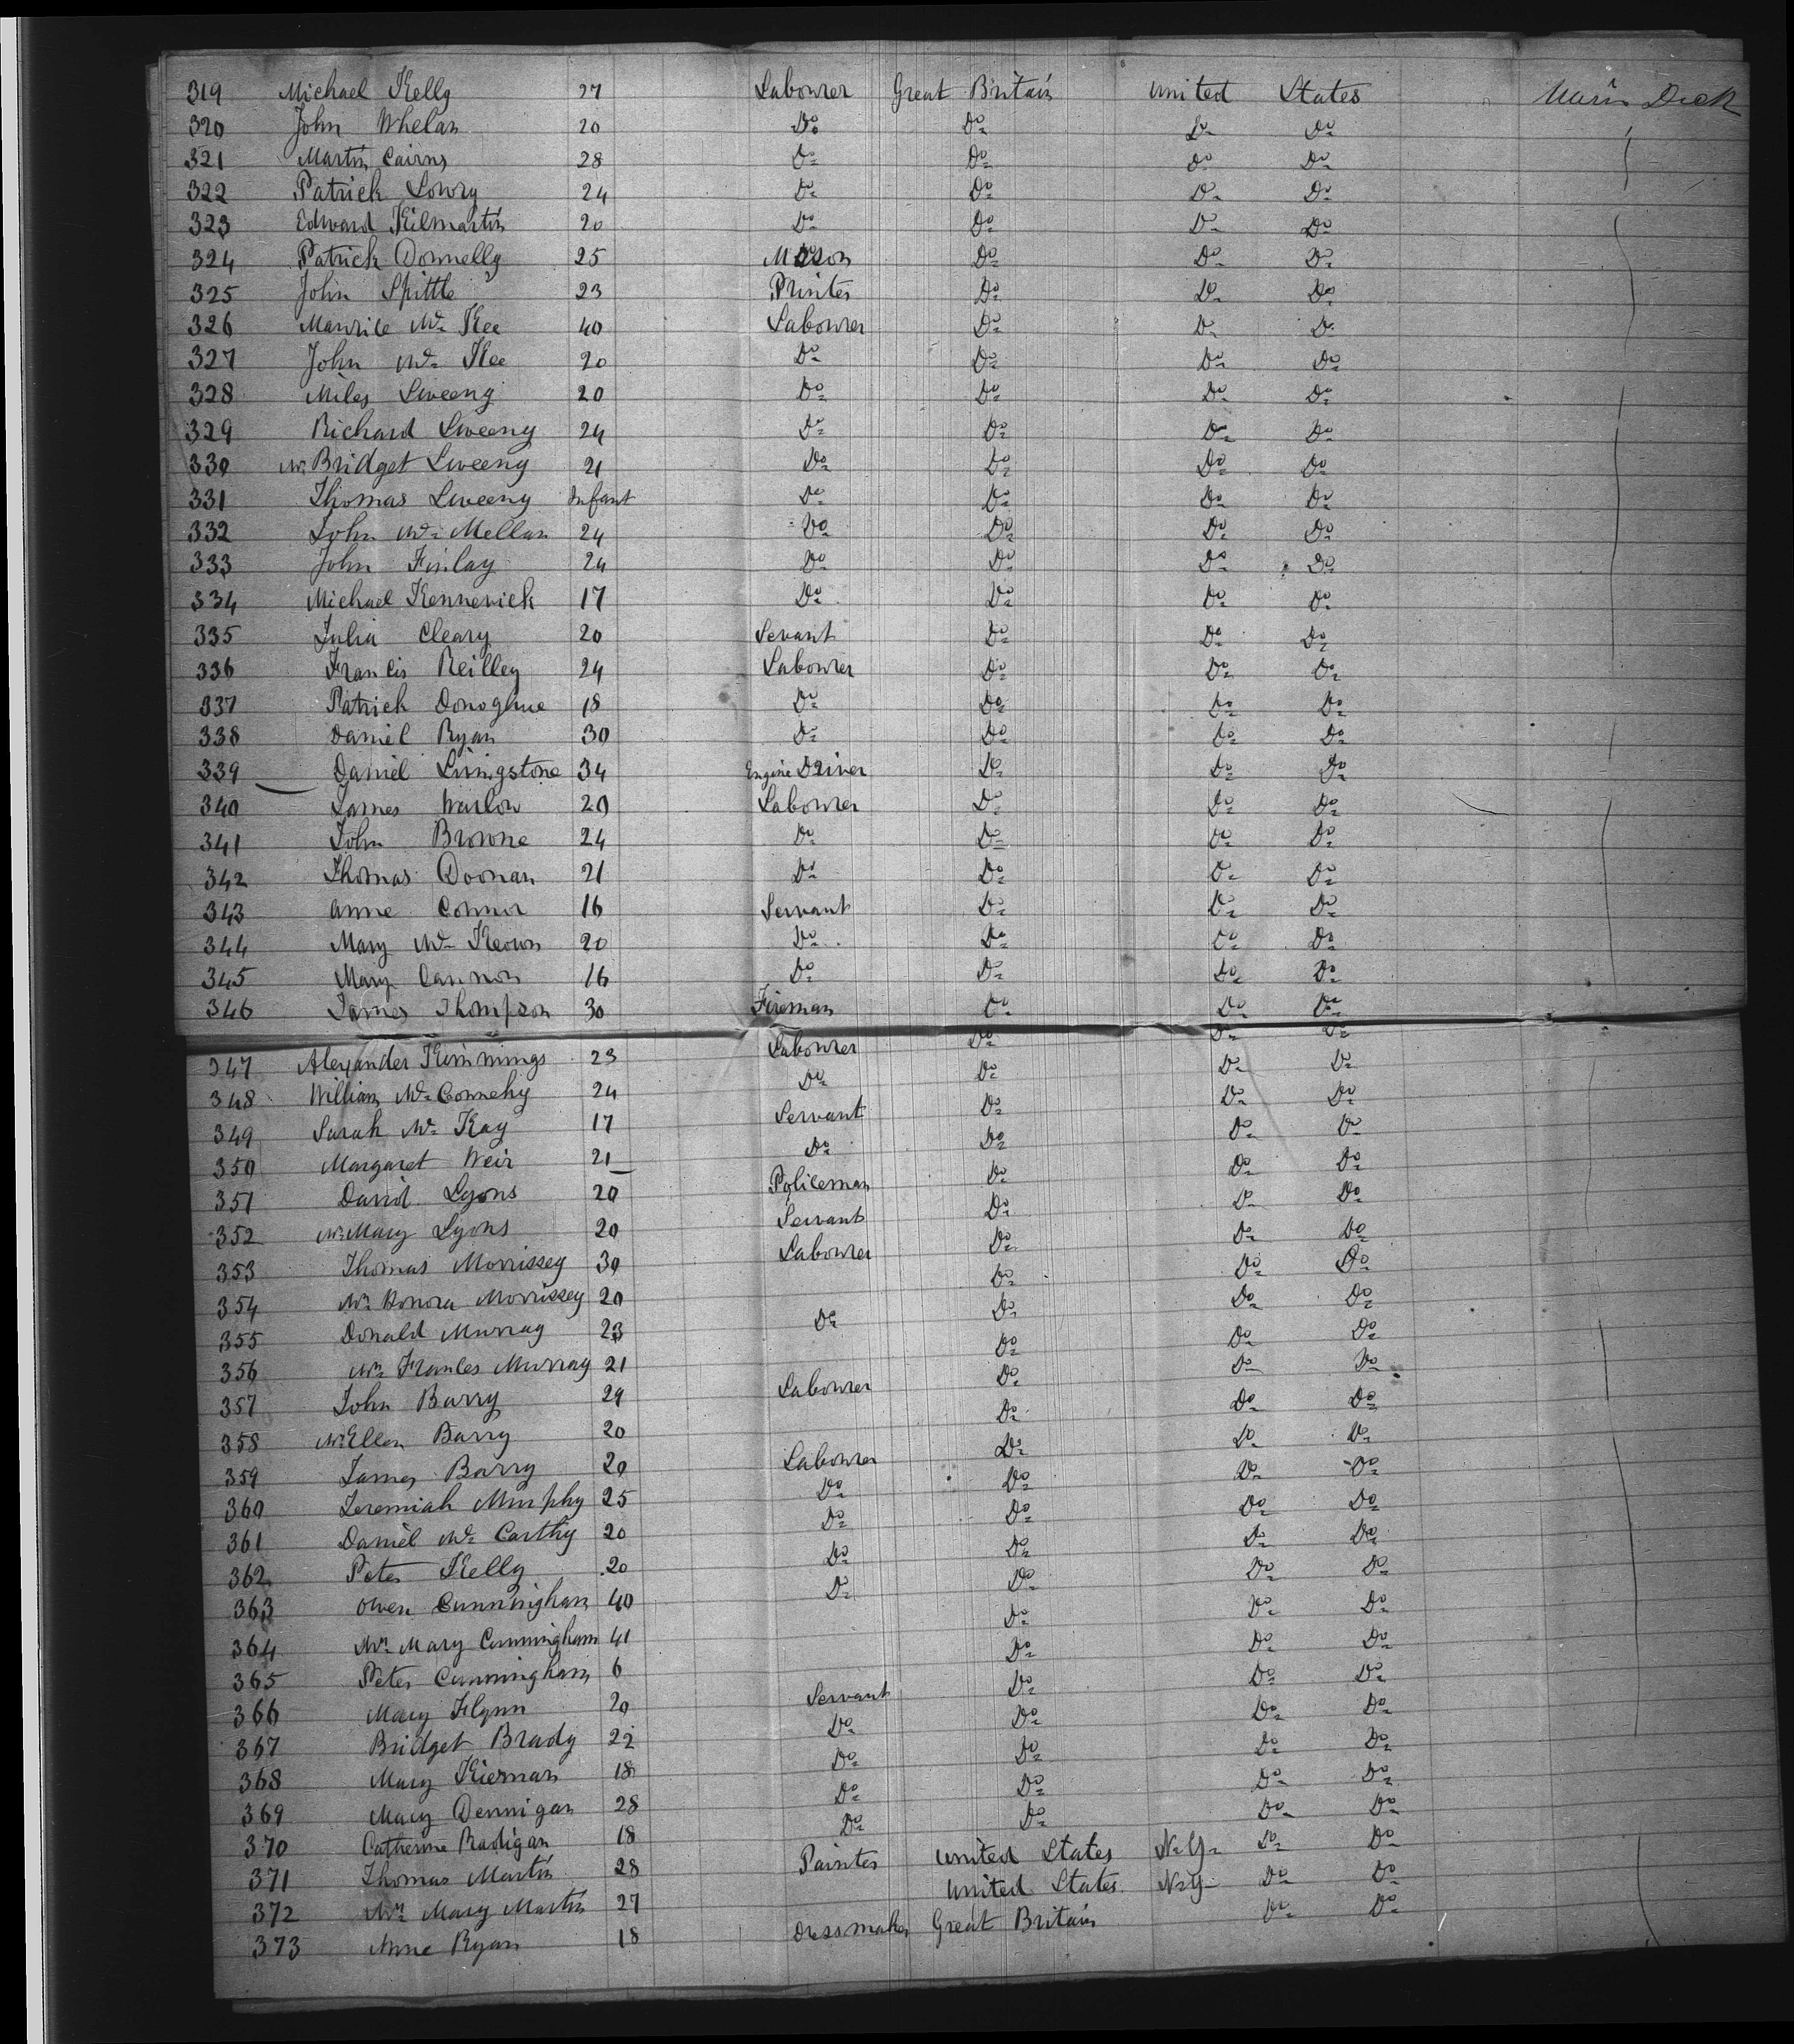 319 Michael Kelly 27 Labourer Great Britain United States Main Deck
320 John Whelan 20 Do Do Do Do
321 Martin Cairns 28 Do Do Do Do
322 Patrick Lowry 24 Do Do Do Do
323 Edward Kilmartin 20 Do Do Do Do
324 Patrick Donnelly 25 Mason Do Do Do
325 John Spittle 23 Printer Do Do Do
326 Maurice Mc Kee 40 Labourer Do Do Do
327 John Mc Kee 20 Do Do Do Do
328 Miles Sweeny 20 Do Do Do Do
329 Richard Sweeny 24 Do Do Do Do
330 Mrs Bridget Sweeny 21 Do Do Do Do
331 Thomas Sweeny Infant Do Do Do Do
332 John Mc Mellan 24 Do Do Do Do
333 John Finlay 24 Do Do Do Do
334 Michael Kennevick 17 Do Do Do Do
335 Julia Cleary 20 Sevant Do Do Do
336 Francis Reilley 24 Labourer Do Do Do
337 Patrick Donoghue 18 Do Do Do Do
338 Daniel Ryan 30 Do Do Do Do
339 Daniel Livingstone 34 Engine Driver Do Do Do
340 James Warlow 20 Labourer Do Do Do
341 John Browne 24 Do Do Do Do
342 Thomas Doonan 21 Do Do Do Do
343 Anne Connor 16 Servant Do Do Do
344 Mary Mc Keown 20 Do Do Do Do
345 Mary Cannon 16 Do Do Do Do
346 James Thompson 30 Fireman Do Do Do
347 Alexander Kimmings 23 Labourer Do Do Do
348 William Mc Connehy 24 Do Do Do Do
349 Sarah Mc Kay 17 Servant Do Do Do
350 Margaret Weir 21 Do Do Do Do
351 David Lyons 20 Policeman Do Do Do
352 Mrs Mary Lyons 20 Servant Do Do Do
353 Thomas Morrissey 30 Labourer Do Do Do
354 Mrs Honora Morrissey 20 Do Do Do
355 Donald Murray 23 Do Do Do Do
356 Mrs Frances Murray 21 Do Do Do
357 John Barry 29 Labourer Do Do Do
358 Mrs Ellen Barry 20 Do Do Do
359 James Barry 20 Labourer Do Do Do
360 Jeremiah Murphy 25 Do Do Do Do
361 Daniel Mc Carthy 20 Do Do Do Do
362 Peter Kelly 20 Do Do Do Do
363 Owen Cunningham 40 Do Do Do Do
364 Mrs Mary Cunningham 41 Do Do Do
365 Peter Cunningham 6 Do Do Do
366 Mary Flynn 20 Servant Do Do Do
367 Bridget Brady 22 Do Do Do Do
368 Mary Kiernan 18 Do Do Do Do
369 Mary Dennigan 28 Do Do Do Do
370 Catherine Radigan 18 Do Do Do Do
371 Thomas Martin 28 Painter United States N.Y. Do Do
372 Mrs Mary Martin 27 United States N.Y. Do Do
373 Anne Ryan 18 Dressmaker Great Britain Do Do